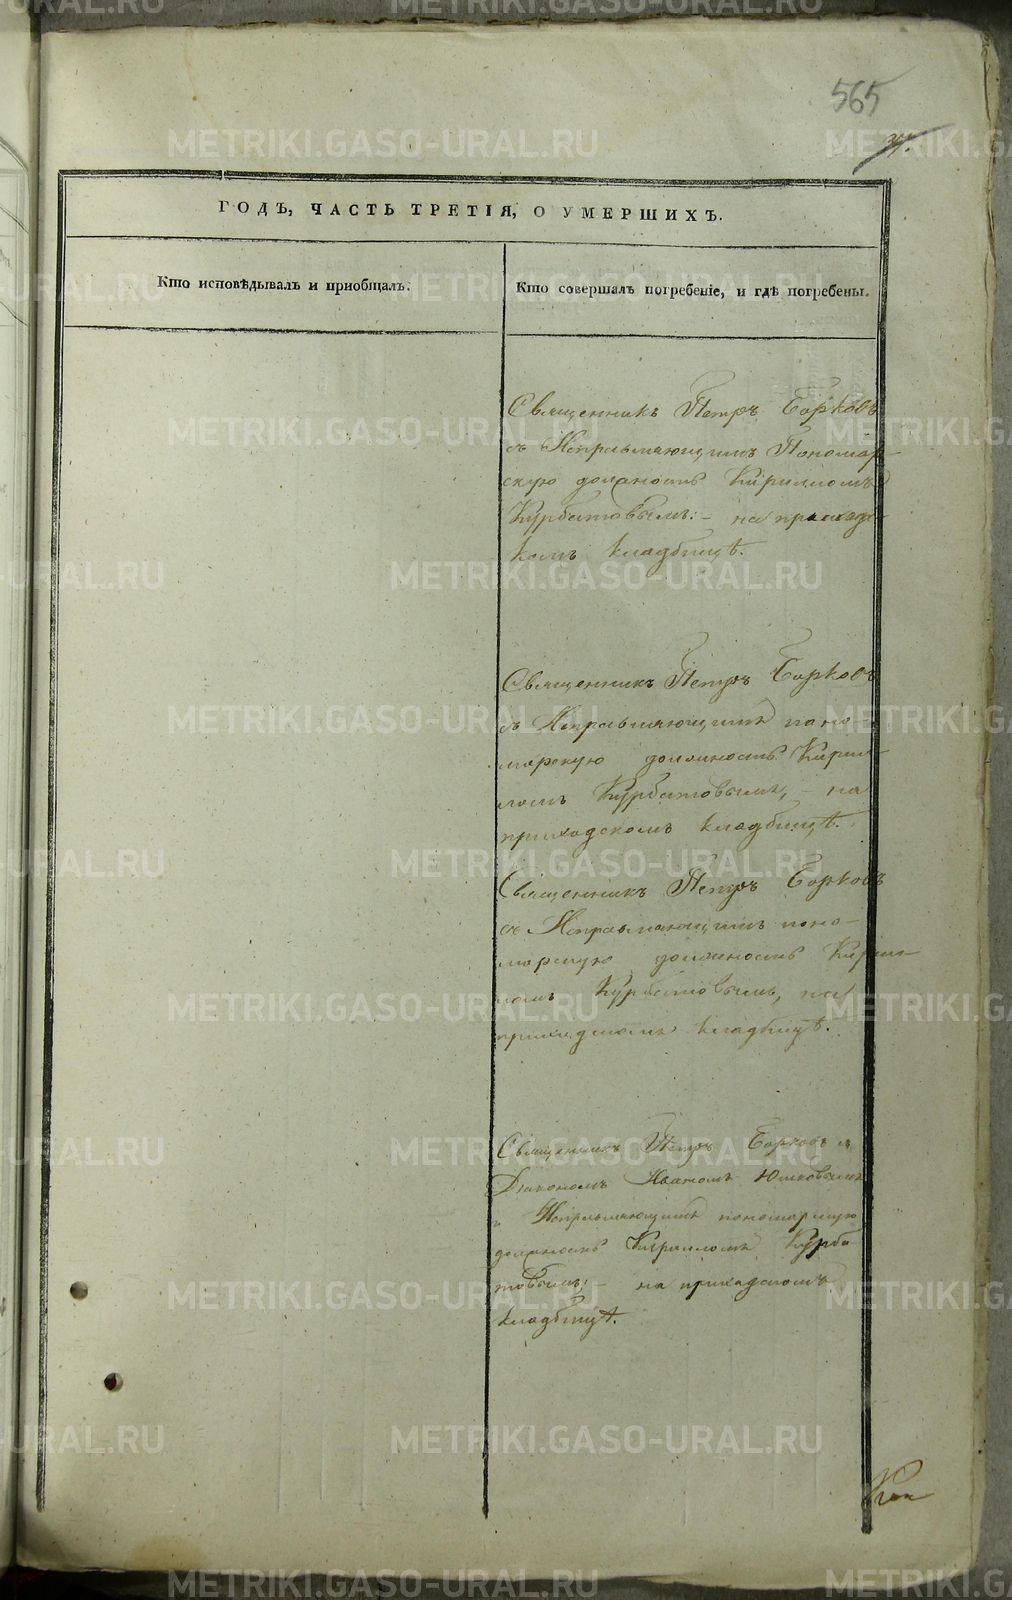 565
ГОДЪ, ЧАСТЬ ТРЕТІЯ, О УМЕРШИХЪ.
Кто исповѣдывалъ и приобщалъ.
Кто совершалъ погребеніе, и гдѣ погребены.
Священникъ Петръ Борковъ
съ Исправляющимъ Пономар-
скую должность Кирилломъ
Курбатовымъ:- на приходс-
комъ кладбищѣ.
Священникъ Петръ Борковъ
съ Исправляющимъ поно-
марскую должность Кирил-
ломъ Курбатовымъ, - на
приходскомъ кладбищѣ.
Священникъ Петръ Борковъ
съ Исправляющимъ поно-
марскую должность Кирил-
ломъ Курбатовымъ, на
приходскомъ кладбищѣ.
Священникъ Петръ Борковъ съ
Діакономъ Иваномъ Юшковымъ
и Исправляющимъ пономарскую
должность Кирилломъ Курба-
товымъ; - на приходскомъ
кладбищѣ.
METRIKI.GASO-URAL.RU